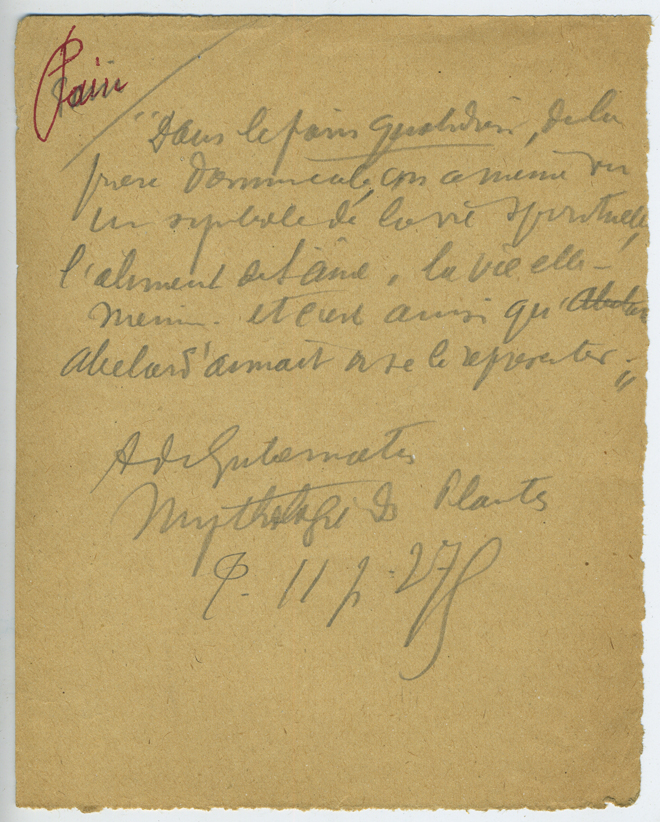 Pain
"Dans le pain quotidien, de la
priere dominicale, on a meme vu
un symbole de la vie spirituelle,
l'aliment de l'âme, la vie elle-
meme. et c'est ainsi qu'
Abelard aimait a se le representer -"
A de Gubernatis
Mythologie des Plantes
II p. 27